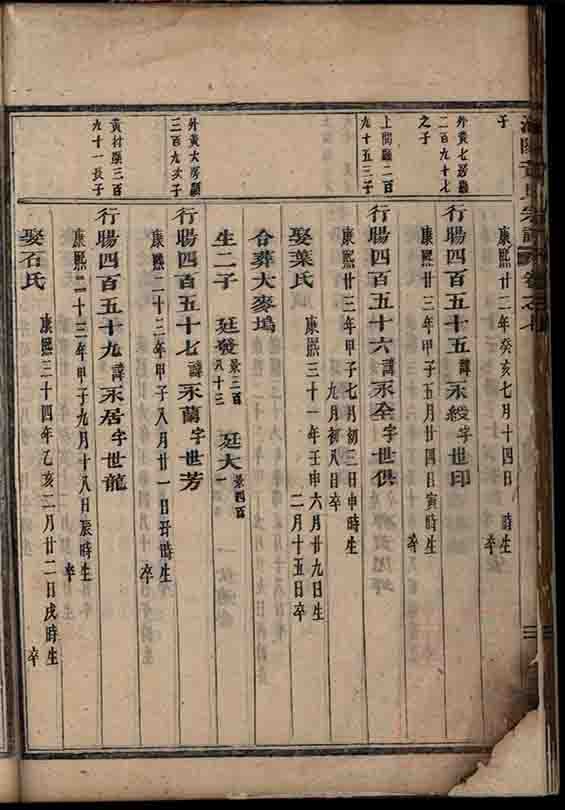 宗譜
子
康熙廿二年癸亥七月十四日 時生 卒
外黃七房顯
二百九十七
之子
行暘四百五十五諱永綬字世印
康熙廿三年甲子五月廿四日寅時生 卒
上閣顯二百
九十五三子
行暘四百五十六諱永全字世供
康熙廿三年甲子七月初三日申時生
九月初八日卒
娶葉氏
康熙三十一年壬申六月廿九日生
二月十五日卒
合葬大麥塢
生二子 廷發景三百八十三 廷大景四百一
外黃大房顯
三百九次子
行暘四百五十七諱永蘭字世芳
康熙二十三年甲子八月廿一日丑時生 卒
黃村顯三百
九十一長子
行暘四百五十九諱永居字世龍
康熙二十三年甲子九月十八日辰時生 卒
娶石氏
康熙三十四年乙亥二月廿二日戌時生 卒